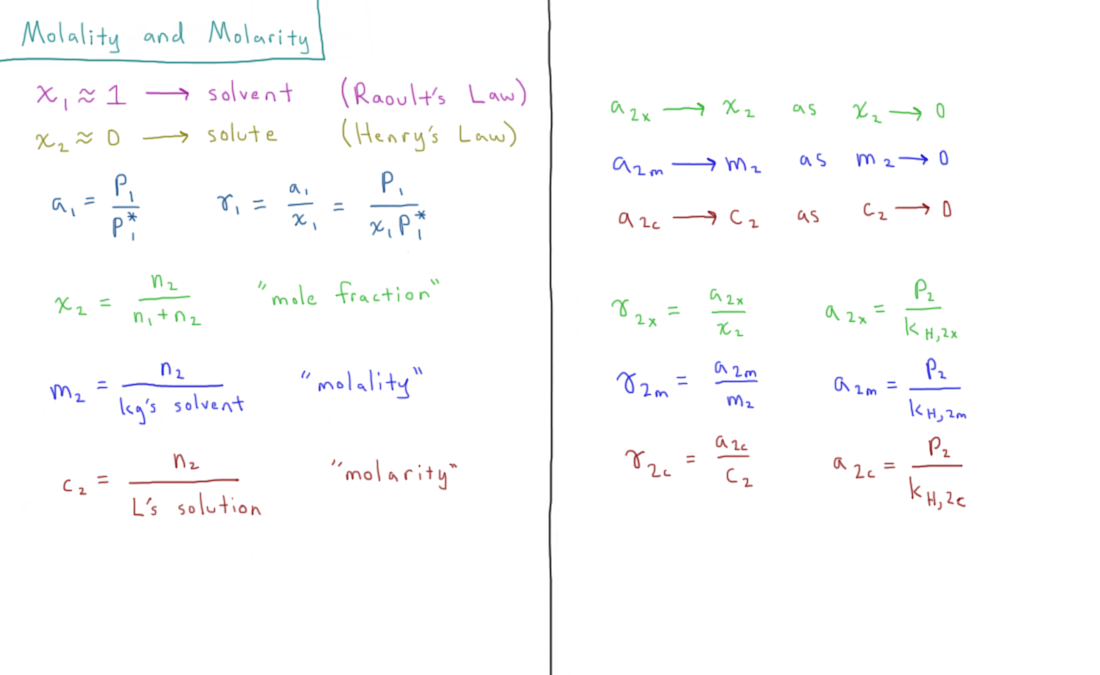 Molality and Molarity
x₁ ≈ 1 → solvent (Raoult's Law)
x₂ ≈ 0 → solute (Henry's Law)
a₁ = P₁ / P₁* γ₁ = a₁ / x₁ = P₁ / x₁P₁*
x₂ = n₂ / n₁ + n₂ "mole fraction"
m₂ = n₂ / kg's solvent "molality"
c₂ = n₂ / L's solution "molarity"
a₂ₓ → x₂ as x₂ → 0
a₂ₘ → m₂ as m₂ → 0
a_2c → c₂ as c₂ → 0
γ₂ₓ = a₂ₓ / x₂ a₂ₓ = P₂ / k_H,2x
γ₂ₘ = a₂ₘ / m₂ a₂ₘ = P₂ / k_H,2m
γ_2c = a_2c / c₂ a_2c = P₂ / k_H,2c